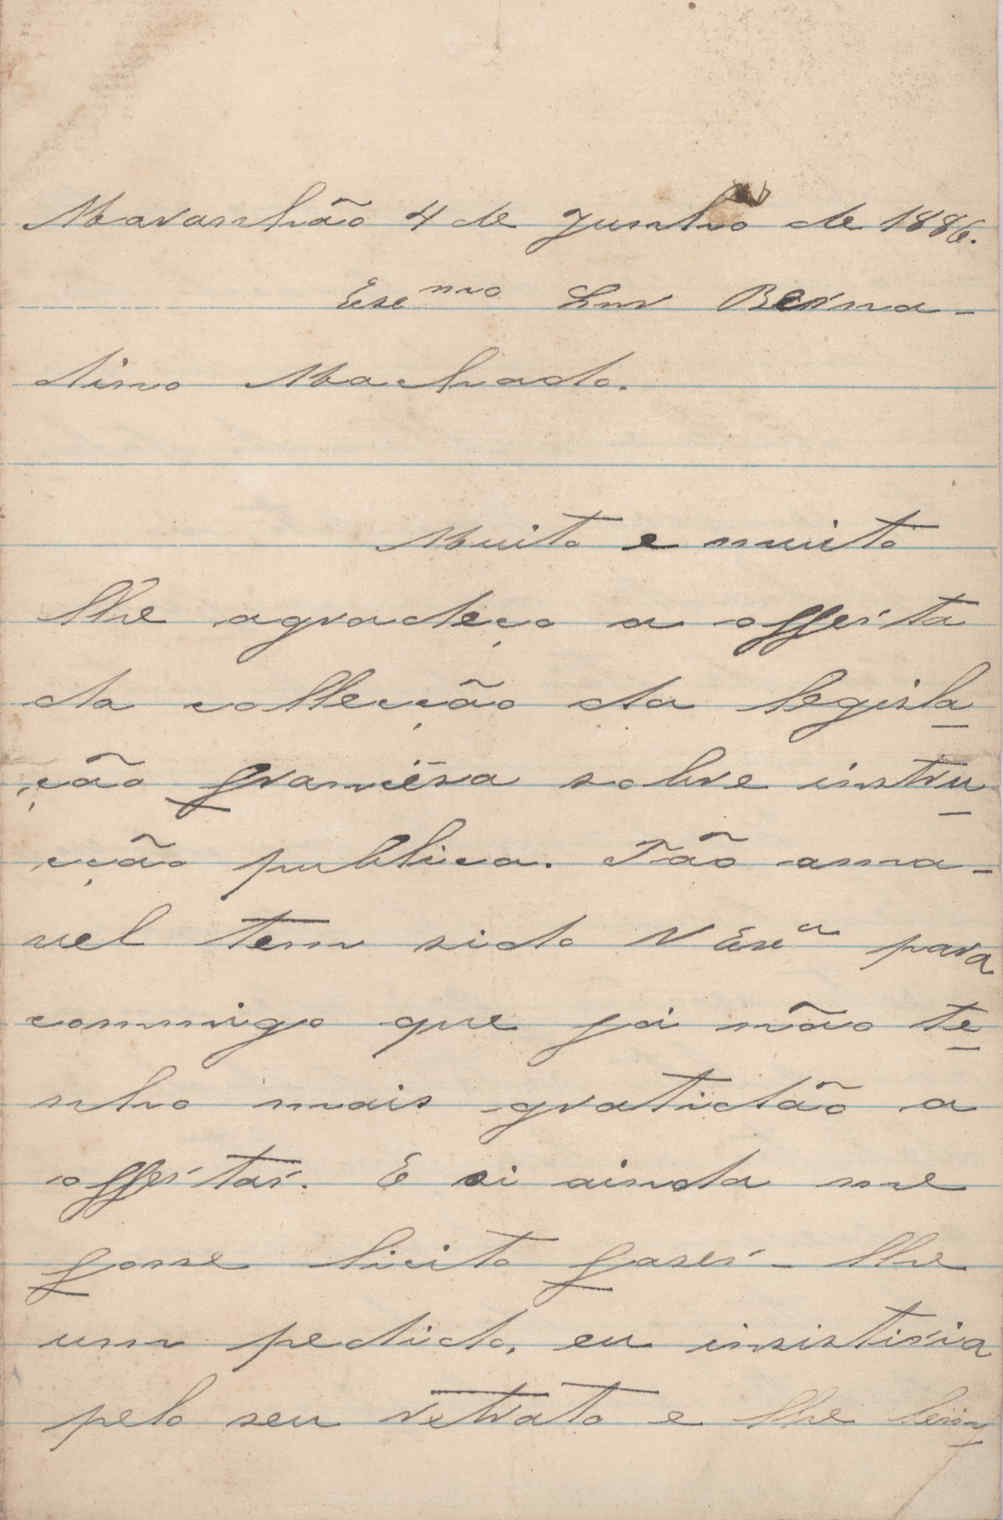 Maranhão 4 de Junho de 1886.
Exc mo Snr Berna-
dino Machado.
Muito e muito
lhe agradeço a offerta
da collecção da legisla
ção franceza sobre instru
cção publica. Tão ama-
vel tem sido V Exc a para
commigo que já não te
nho mais gratidão a
offertar. E si ainda me
fosse licito fazer-lhe
um pedido, eu insistiria
pelo seu retrato e lhe lem